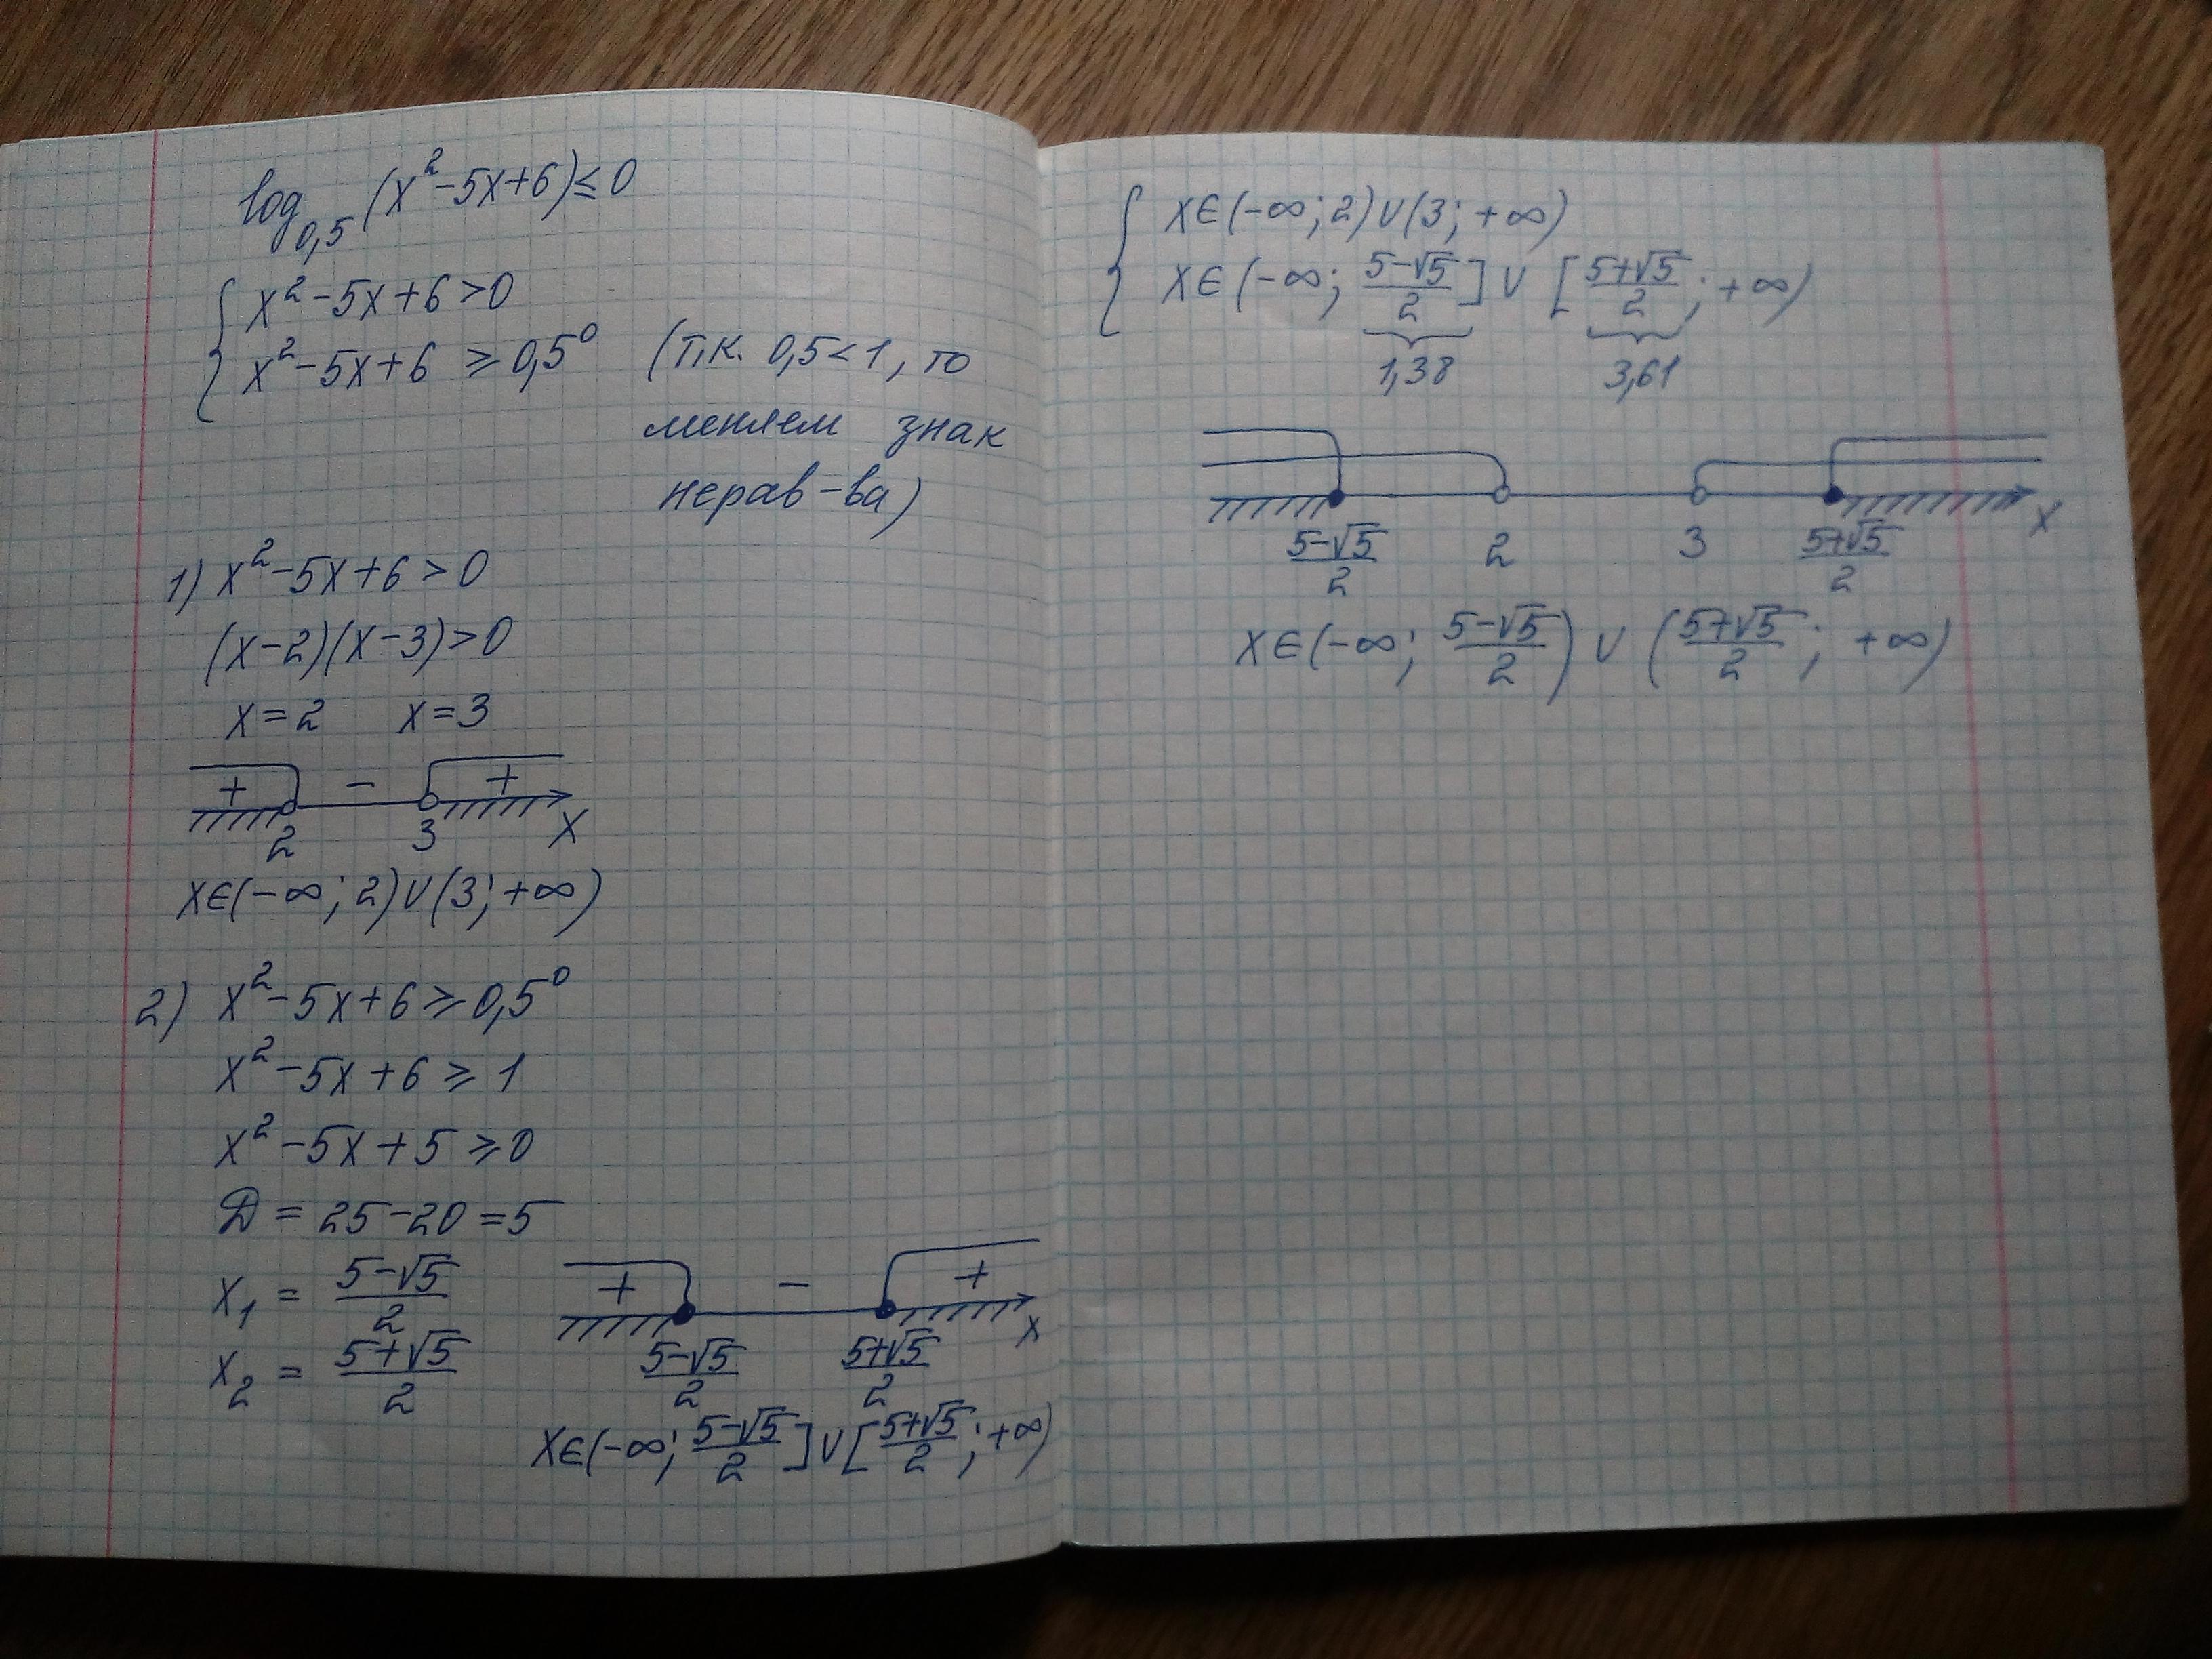 log₀,₅ (x²-5x+6)≤0
{ x²-5x+6>0
{ x²-5x+6 ≥ 0,5⁰ (т.к. 0,5<1, то
меняем знак
нерав-ва)
1) x²-5x+6>0
(x-2)(x-3)>0
x=2 x=3
+ - +
2 3 x
x∈(-∞; 2)∪(3; +∞)
2) x²-5x+6 ≥ 0,5⁰
x²-5x+6 ≥ 1
x²-5x+5 ≥ 0
D = 25-20 = 5
x₁ = (5-√5)/2
x₂ = (5+√5)/2
+ - +
(5-√5)/2 (5+√5)/2 x
x∈(-∞; (5-√5)/2]∪[(5+√5)/2; +∞)
{ x∈(-∞; 2)∪(3; +∞)
{ x∈(-∞; (5-√5)/2]∪[(5+√5)/2; +∞)
1,38 3,61
(5-√5)/2 2 3 (5+√5)/2 x
x∈(-∞; (5-√5)/2)∪((5+√5)/2; +∞)